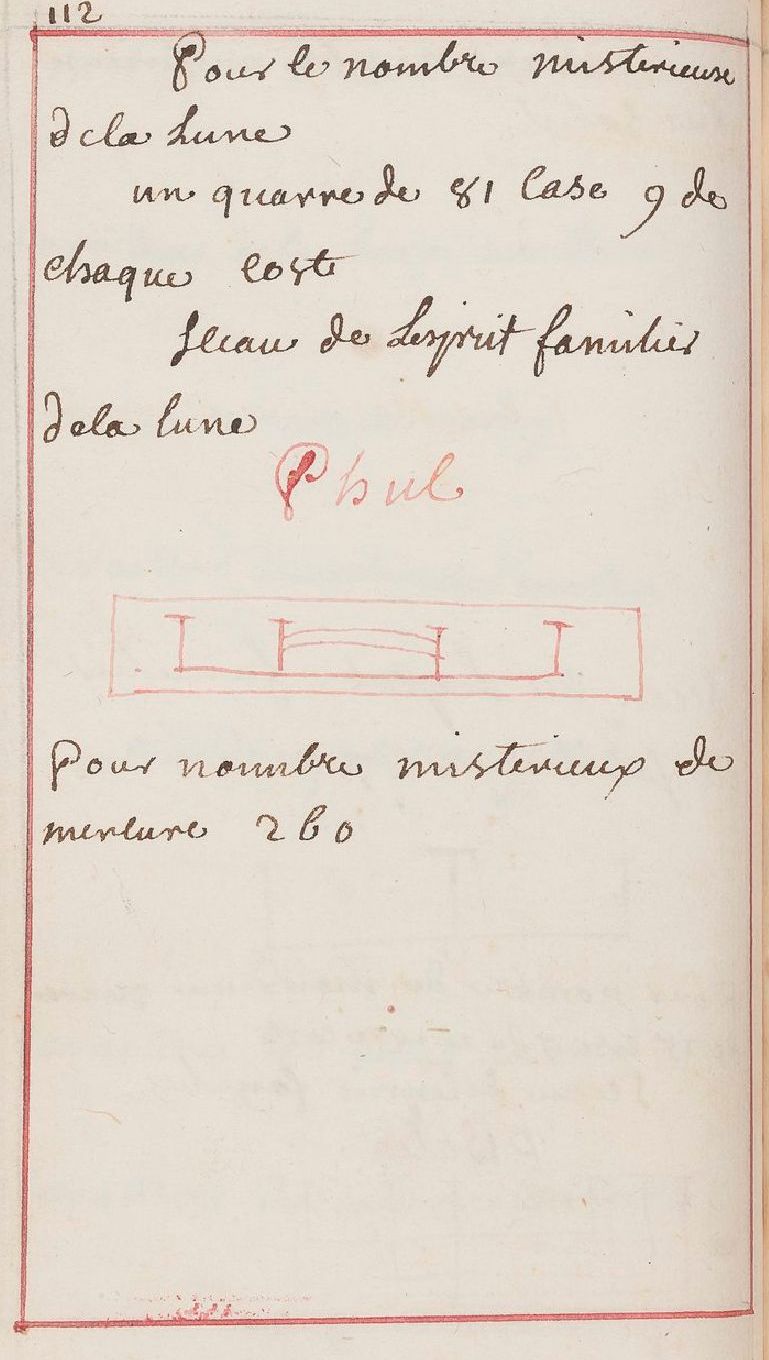 112
Pour le nombre misterieuse
dela Lune
un quarre de 81 Case 9 de
chaque coste
sceau de Lesprit familier
dela lune
Phul
Pour nombre misterieux de
mercure 260